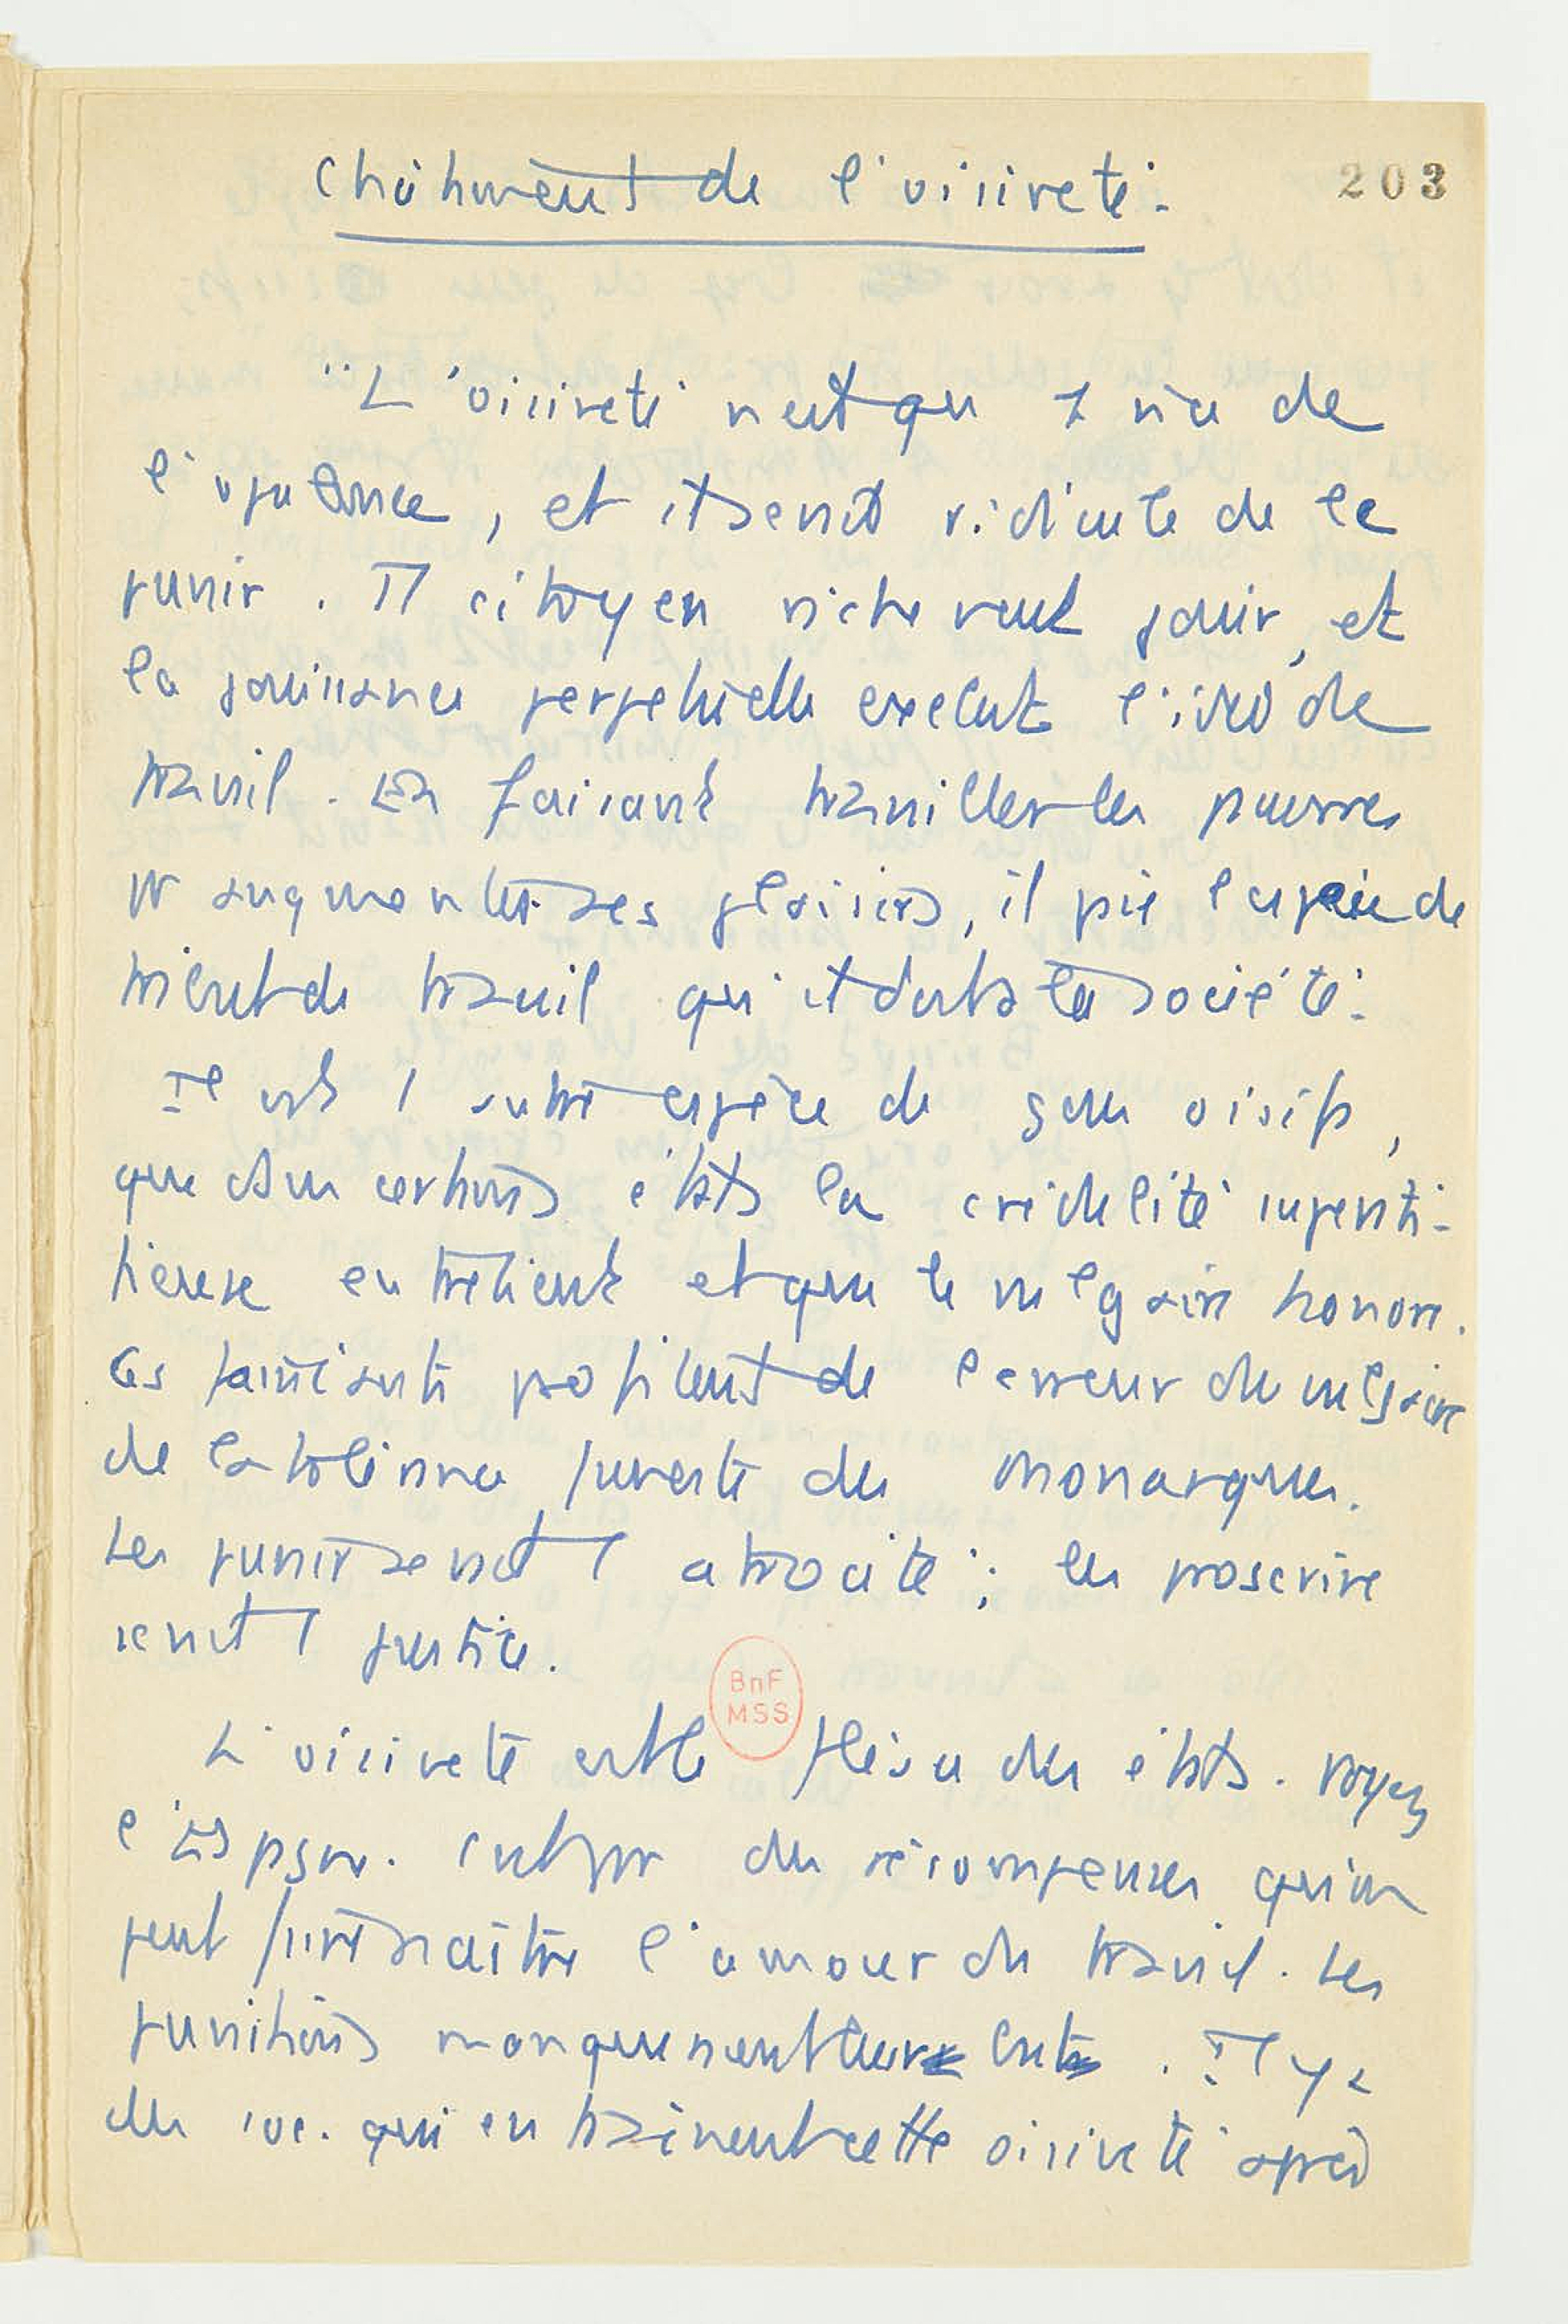 Châtiment de l'oisiveté.
203
"L'oisiveté n'est qu 1 vice de
l'opulence, et il serait ridicule de le
punir. Tt citoyen riche veut jouir, et
la jouissance perpétuelle exclut l'idée de
travail. En faisant travailler les pauvres
pr augmenter ses plaisirs, il paie l'espèce de
tribut de travail qu'il doit à la société.
Il est 1 autre espèce de gens oisifs,
que dans certains états la crédulité supersti-
tieuse entretient et que le vulgaire honore.
Ces fainéants profitent de l'erreur du vulgaire
de la tolérance funeste des monarques.
Les punir serait 1 atrocité ; les proscrire
serait 1 justice.
BnF
MSS
L'oisiveté est le fléau des états. Voyez
l'Espagne. C'est par des récompenses qu'on
peut faire naître l'amour du travail. Les
punitions manqueraient leur but. Il y a
des soc. qui entraînent cette oisiveté après